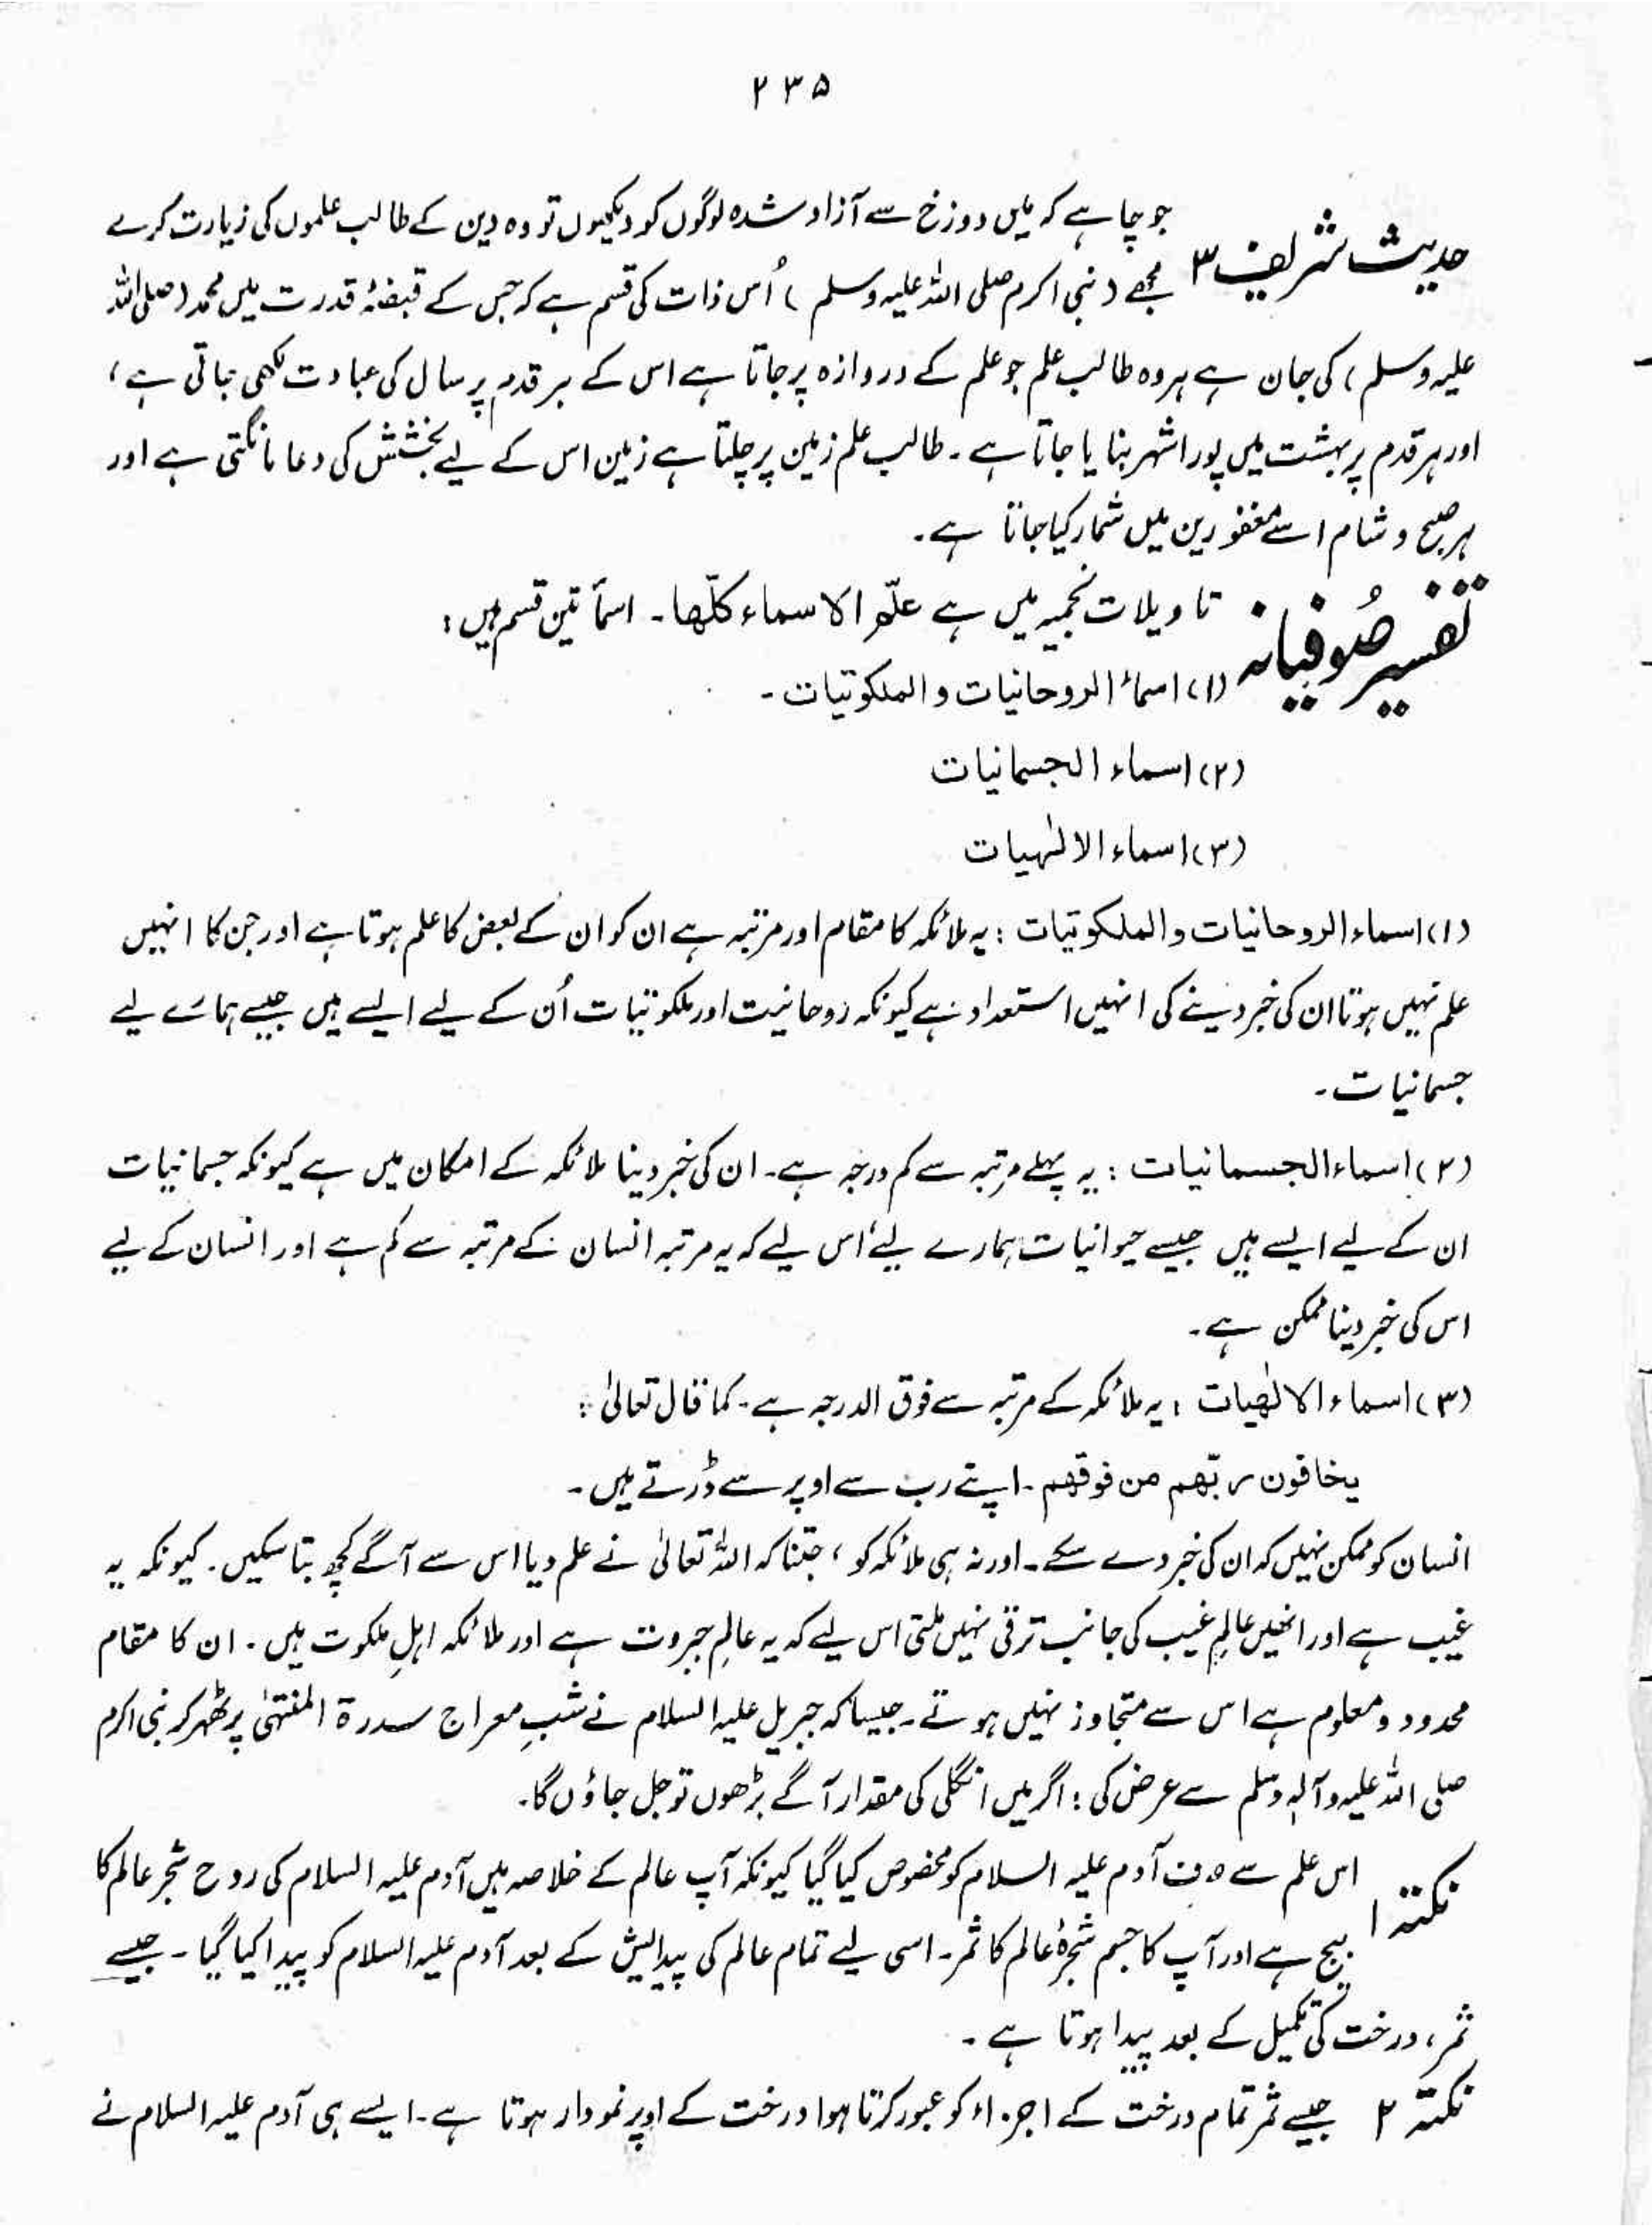 ۲۳۵
حدیث شریف ۳ جو چاہے کہ میں دوزخ سے آزاد شدہ لوگوں کو دیکھوں تو وہ دین کے طالب علموں کی زیارت کرے
مجھے (نبی اکرم صلی اللہ علیہ وسلم) اُس ذات کی قسم ہے کہ جس کے قبضۂ قدرت میں محمد (صلی اللہ
علیہ وسلم) کی جان ہے ہر وہ طالب علم جو علم کے دروازہ پر جاتا ہے اس کے ہر قدم پر سال کی عبادت لکھی جاتی ہے ،
اور ہر قدم پر بہشت میں پورا شہر بنایا جاتا ہے ۔ طالب علم زمین پر چلتا ہے زمین اس کے لیے بخشش کی دعا مانگتی ہے اور
ہر صبح و شام اسے مغفورین میں شمار کیا جاتا ہے ۔
تفسیر صُوفیانہ تاویلات نجمیہ میں ہے علّم الاسماء کلّھا ۔ اسمأ تین قسم ہیں :
(۱) اسمأ الروحانیات و الملکوتیات ۔
(۲) اسماء الجسمانیات
(۳) اسماء الالٰہیات
(۱) اسماء الروحانیات و الملکوتیات : یہ ملائکہ کا مقام اور مرتبہ ہے ان کو ان کے بعض کا علم ہوتا ہے اور جن کا انہیں
علم نہیں ہوتا ان کی خبر دینے کی انہیں استعداد ہے کیونکہ روحانیت اور ملکوتیات اُن کے لیے ایسے ہیں جیسے ہمارے لیے
جسمانیات ۔
(۲) اسماء الجسمانیات : یہ پہلے مرتبہ سے کم درجہ ہے ۔ ان کی خبر دینا ملائکہ کے امکان میں ہے کیونکہ جسمانیات
ان کے لیے ایسے ہیں جیسے حیوانیات ہمارے لیے اس لیے کہ یہ مرتبہ انسان کے مرتبہ سے کم ہے اور انسان کے لیے
اس کی خبر دینا ممکن ہے ۔
(۳) اسماء الالٰھیات : یہ ملائکہ کے مرتبہ سے فوق الدرجہ ہے ۔ کما قال تعالیٰ :
یخافون ربّھم من فوقھم ۔ اپنے رب سے اوپر سے ڈرتے ہیں ۔
انسان کو ممکن نہیں کہ ان کی خبر دے سکے ۔ اور نہ ہی ملائکہ کو ، جتنا کہ اللہ تعالیٰ نے علم دیا اس سے آگے کچھ بتا سکیں ۔ کیونکہ یہ
غیب ہے اور انھیں عالمِ غیب کی جانب ترقی نہیں ملتی اس لیے کہ یہ عالمِ جبروت ہے اور ملائکہ اہلِ ملکوت ہیں ۔ ان کا مقام
محدود و معلوم ہے اس سے متجاوز نہیں ہوتے ۔ جیسا کہ جبریل علیہ السلام نے شبِ معراج سدرۃ المنتہیٰ پر ٹھہر کر نبی اکرم
صلی اللہ علیہ وآلہٖ وسلم سے عرض کی : اگر میں انگلی کی مقدار آگے بڑھوں تو جل جاؤں گا ۔
نکتہ ۱ اس علم سے آدم علیہ السلام کو مخصوص کیا گیا کیونکہ آپ عالم کے خلاصہ ہیں آدم علیہ السلام کی روح شجر عالم کا
بیج ہے اور آپ کا جسم شجرۂ عالم کا ثمر ۔ اسی لیے تمام عالم کی پیدایش کے بعد آدم علیہ السلام کو پیدا کیا گیا ۔ جیسے
ثمر ، درخت کی تکمیل کے بعد پیدا ہوتا ہے ۔
نکتہ ۲ جیسے ثمر تمام درخت کے اجزاء کو عبور کرتا ہوا درخت کے اوپر نمودار ہوتا ہے ۔ ایسے ہی آدم علیہ السلام نے